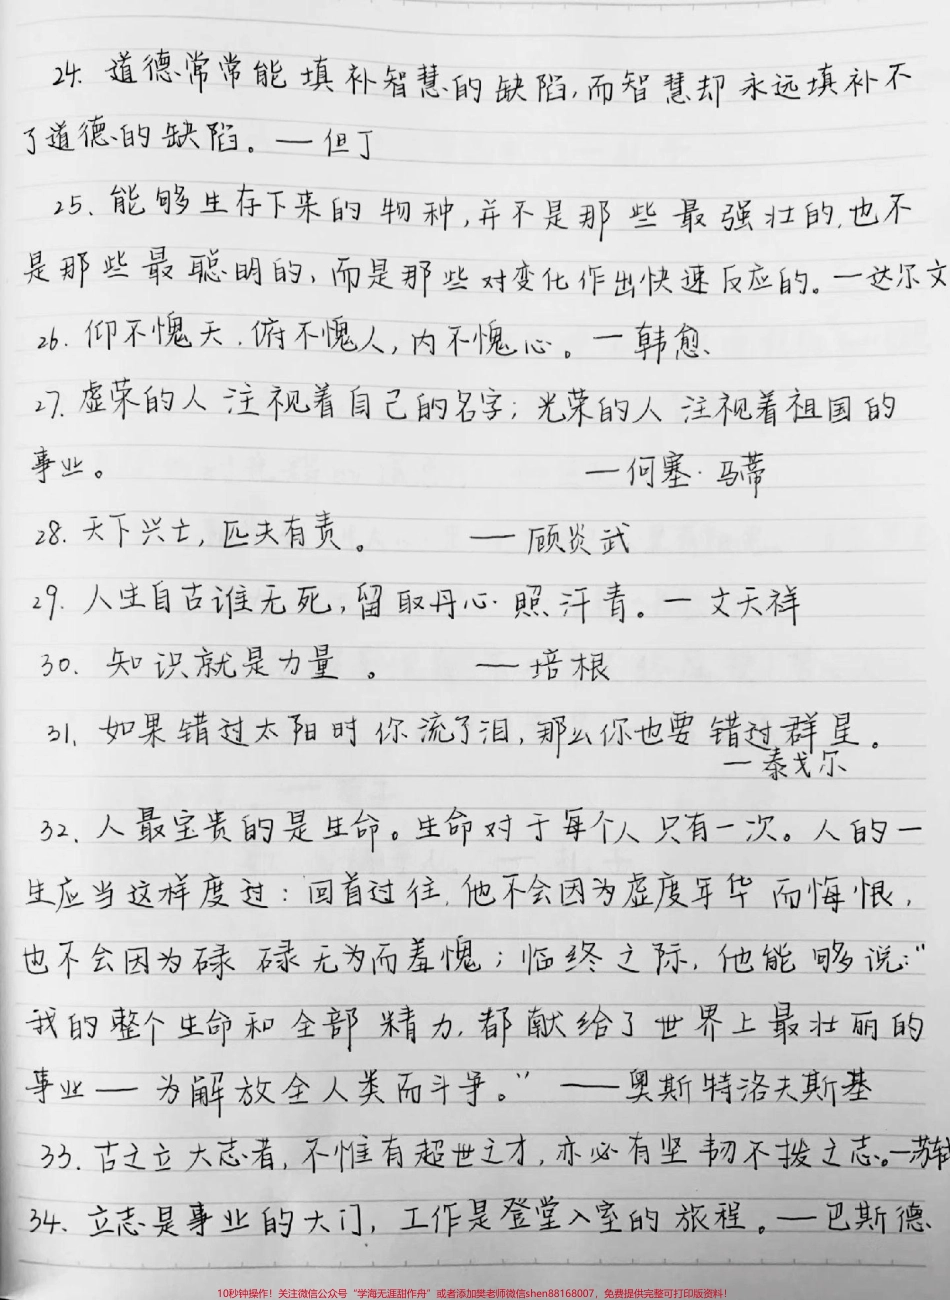 24. 道德常常能填补智慧的缺陷,而智慧却永远填补不
了道德的缺陷。—但丁
25. 能够生存下来的物种,并不是那些最强壮的,也不
是那些最聪明的,而是那些对变化作出快速反应的。—达尔文
26. 仰不愧天,俯不愧人,内不愧心。—韩愈
27. 虚荣的人注视着自己的名字;光荣的人注视着祖国的
事业。 —何塞·马蒂
28. 天下兴亡,匹夫有责。 —顾炎武
29. 人生自古谁无死,留取丹心照汗青。—文天祥
30. 知识就是力量。 —培根
31. 如果错过太阳时你流了泪,那么你也要错过群星。
—泰戈尔
32. 人最宝贵的是生命。生命对于每个人只有一次。人的一
生应当这样度过:回首过往,他不会因为虚度年华而悔恨,
也不会因为碌碌无为而羞愧;临终之际,他能够说:“
我的整个生命和全部精力,都献给了世界上最壮丽的
事业——为解放全人类而斗争。”——奥斯特洛夫斯基
33. 古之立大志者,不惟有超世之才,亦必有坚韧不拨之志。—苏轼
34. 立志是事业的大门,工作是登堂入室的旅程。—巴斯德
10秒钟操作!关注微信公众号“学海无涯甜作舟”或者添加樊老师微信shen88168007,免费提供完整可打印版资料!